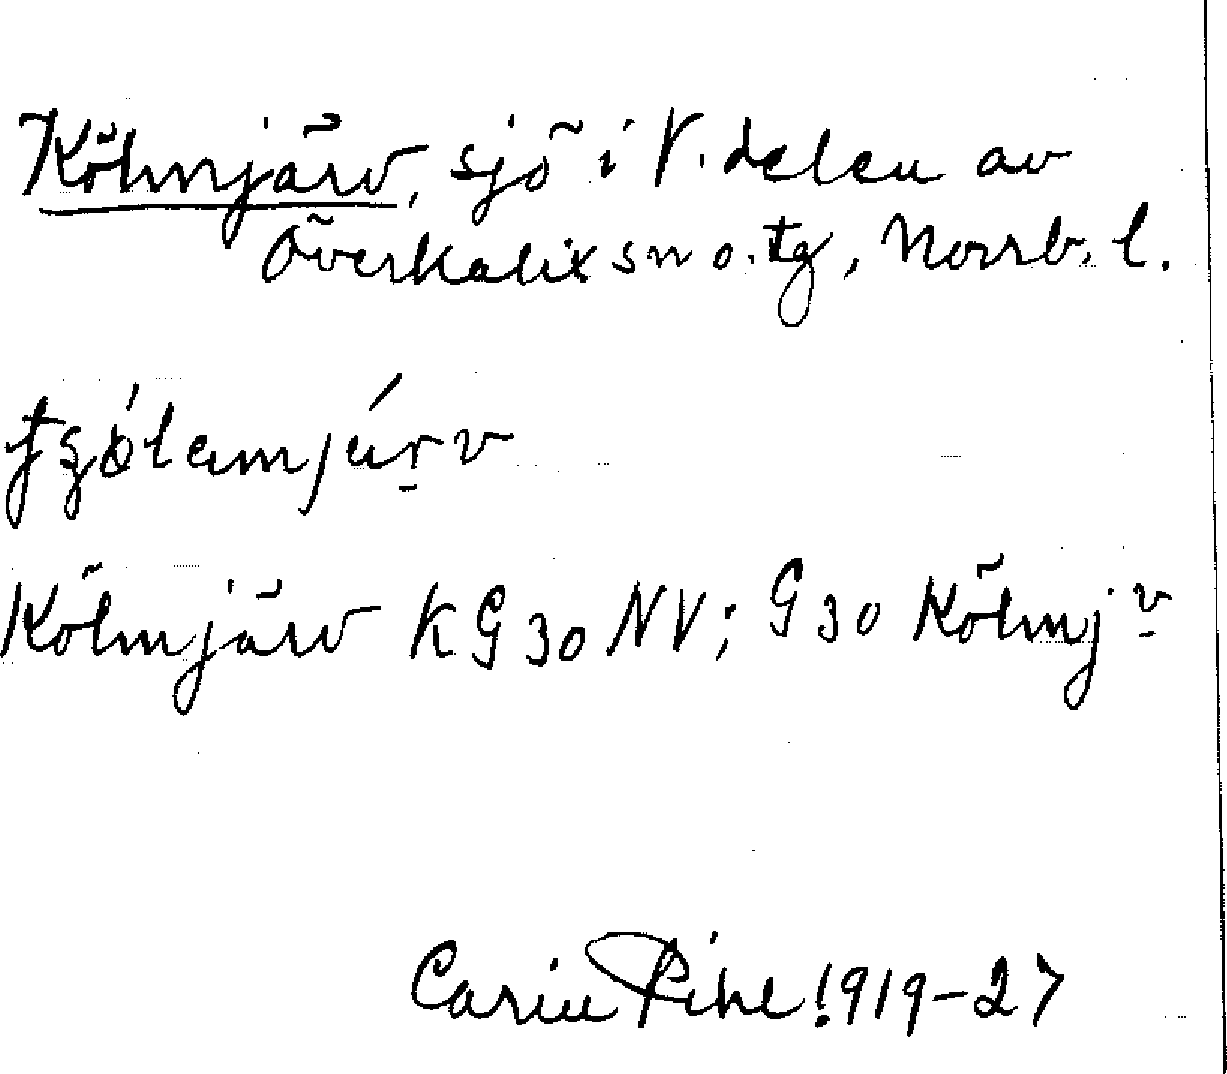 Kölmjärv, sjö i V. delen av
Överkalix sn o. tg, Norrb. l.
Kölmjärv KG 30 NV; G 30 Kölmjv
Carin Pihl 1919-27